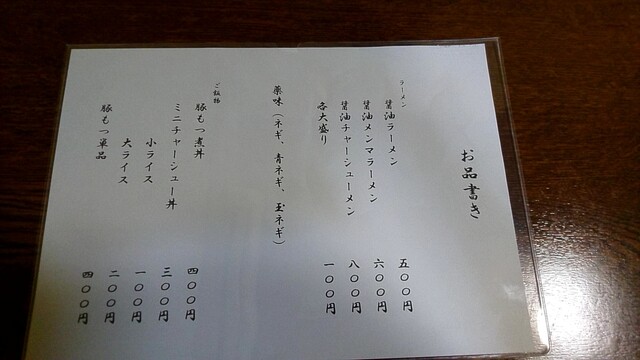 お品書き
ラーメン
醤油ラーメン 五〇〇円
醤油メンマラーメン 六〇〇円
醤油チャーシューメン 八〇〇円
各大盛り 一〇〇円
薬味（ネギ、青ネギ、玉ネギ）
ご飯物
豚もつ煮丼 四〇〇円
ミニチャーシュー丼 三〇〇円
小ライス 一〇〇円
大ライス 二〇〇円
豚もつ単品 四〇〇円